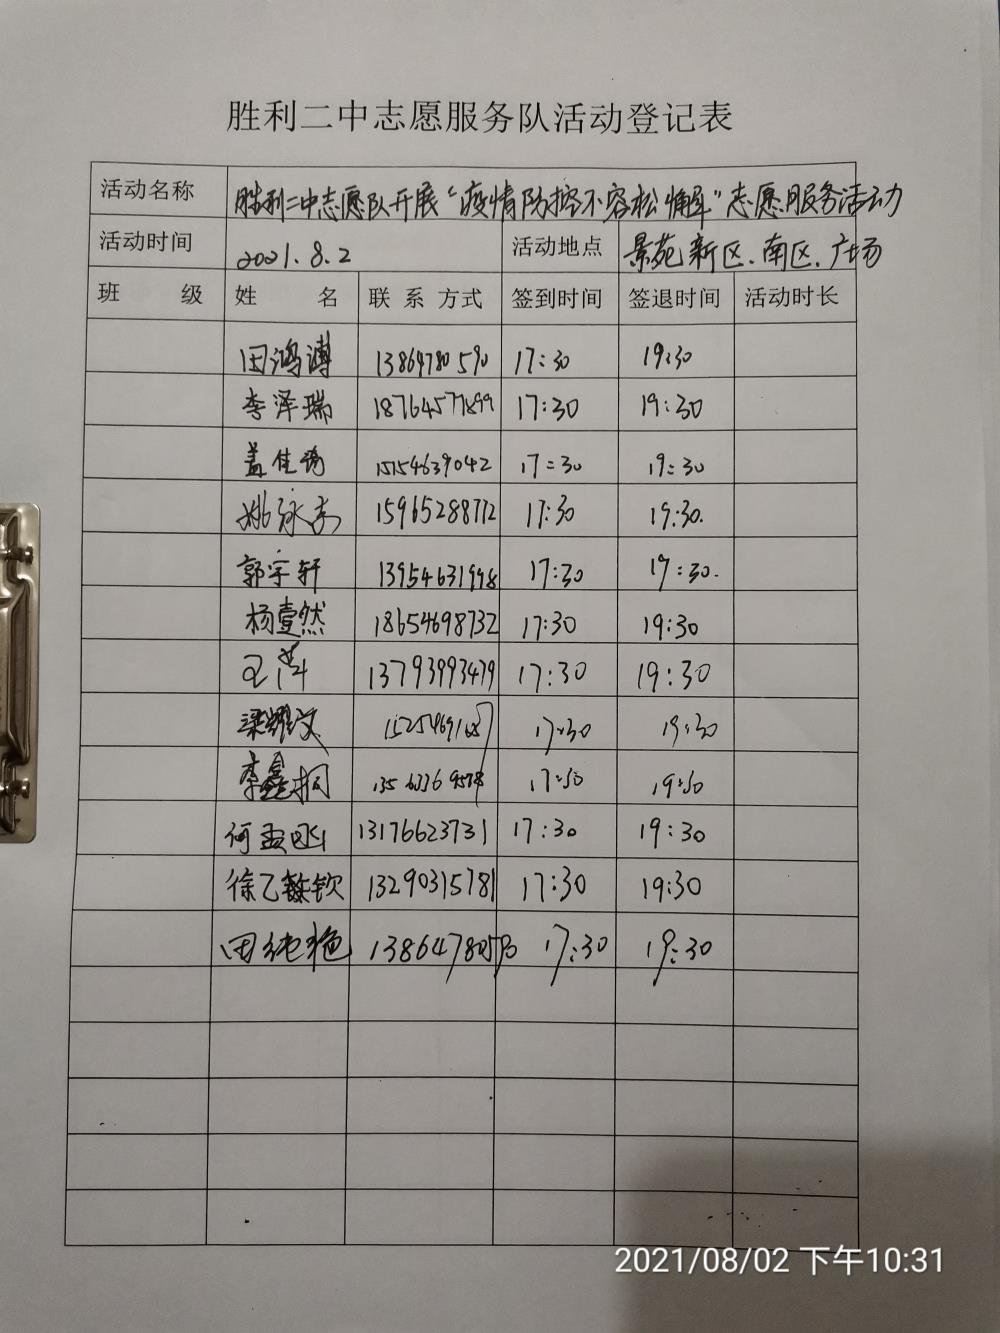 胜利二中志愿服务队活动登记表
活动名称 胜利二中志愿队开展“疫情防控不容松懈”志愿服务活动
活动时间 2021.8.2 活动地点 景苑新区、南区、广场
班 级 姓 名 联系方式 签到时间 签退时间 活动时长
田鸿溥 13864780590 17:30 19:30
李泽瑞 18764571899 17:30 19:30
盖佳琦 15154639042 17:30 19:30
姚泳 15965288772 17:30 19:30.
郭宇轩 13954631998 17:30 19:30.
杨壹然 18654698732 17:30 19:30
王萍 13793993479 17:30 19:30
梁耀文 17:30 19:30
李鑫桐 17:30 19:30
何孟 13176623731 17:30 19:30
徐乙钦 13290315781 17:30 19:30
田纯艳 13864780590 17:30 19:30
2021/08/02 下午10:31